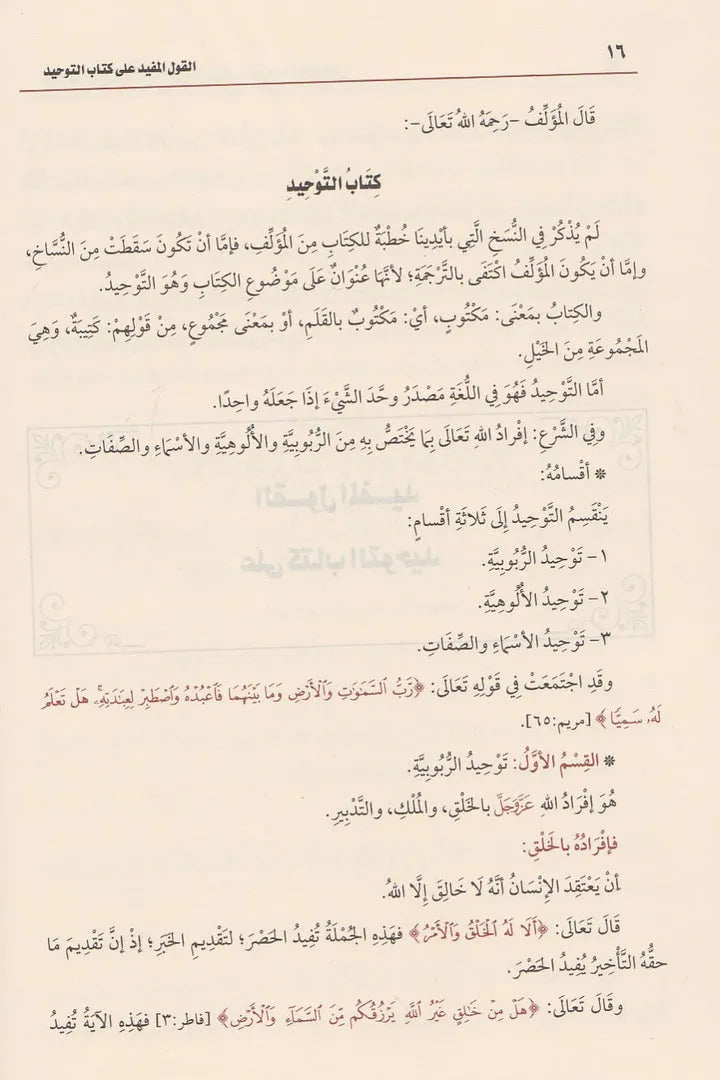 ١٦
القول المفيد على كتاب التوحيد
قَالَ المُؤَلِّفُ -رَحِمَهُ اللهُ تَعَالَى-:
كِتَابُ التَّوْحِيدِ
لَمْ يُذْكَرْ فِي النُّسَخِ الَّتِي بأيْدِينَا خُطْبَةٌ للكِتَابِ مِنَ المُؤَلِّفِ، فإمَّا أنْ تَكُونَ سَقَطَتْ مِنَ النُّسَّاخِ،
وإمَّا أنْ يَكُونَ المُؤَلِّفُ اكْتَفَى بالتَّرْجَمَةِ؛ لأنَّهَا عُنْوَانٌ عَلَى مَوْضُوعِ الكِتَابِ وَهُوَ التَّوْحِيدُ.
والكِتَابُ بمَعْنَى: مَكْتُوبٍ، أيْ: مَكْتُوبٌ بالقَلَمِ، أوْ بمَعْنَى مَجْمُوعٍ، مِنْ قَوْلِهِمْ: كَتِيبَةٌ، وَهِيَ
المَجْمُوعَةِ مِنَ الخَيْلِ.
أمَّا التَّوْحِيدُ فَهُوَ فِي اللُّغَةِ مَصْدَرُ وَحَّدَ الشَّيْءَ إذَا جَعَلَهُ واحِدًا.
وفِي الشَّرْعِ: إفْرادُ اللهِ تَعَالَى بِمَا يَخْتَصُّ بِهِ مِنَ الرُّبُوبِيَّةِ والأُلُوهِيَّةِ والأسْمَاءِ والصِّفَاتِ.
* أقْسامُهُ:
يَنْقَسِمُ التَّوْحِيدُ إلَى ثَلاثَةِ أقْسامٍ:
١- تَوْحِيدُ الرُّبُوبِيَّةِ.
٢- تَوْحِيدُ الأُلُوهِيَّةِ.
٣- تَوْحِيدُ الأسْمَاءِ والصِّفَاتِ.
وقَدِ اجْتَمَعَتْ فِي قَوْلِهِ تَعَالَى: ﴿رَّبُّ ٱلسَّمَٰوَٰتِ وَٱلْأَرْضِ وَمَا بَيْنَهُمَا فَٱعْبُدْهُ وَٱصْطَبِرْ لِعِبَٰدَتِهِۦۚ هَلْ تَعْلَمُ
لَهُۥ سَمِيًّا﴾ [مريم:٦٥].
* القِسْمُ الأوَّلُ: تَوْحِيدُ الرُّبُوبِيَّةِ.
هُوَ إفْرَادُ اللهِ عَزَّوَجَلَّ بالخَلْقِ، والمُلْكِ، والتَّدْبِيرِ.
فإفْرَادُهُ بالخَلْقِ:
أنْ يَعْتَقِدَ الإنْسَانُ أنَّهُ لَا خَالِقَ إلَّا اللهُ.
قَالَ تَعَالَى: ﴿أَلَا لَهُ ٱلْخَلْقُ وَٱلْأَمْرُ﴾ فهَذِهِ الجُمْلَةُ تُفِيدُ الحَصْرَ؛ لتَقْدِيمِ الخَبَرِ؛ إذْ إنَّ تَقْدِيمَ مَا
حقُّهُ التَّأْخِيرُ يُفِيدُ الحَصْرَ.
وقَالَ تَعَالَى: ﴿هَلْ مِنْ خَٰلِقٍ غَيْرُ ٱللَّهِ يَرْزُقُكُم مِّنَ ٱلسَّمَآءِ وَٱلْأَرْضِ﴾ [فاطر:٣] فهَذِهِ الآيَةُ تُفِيدُ